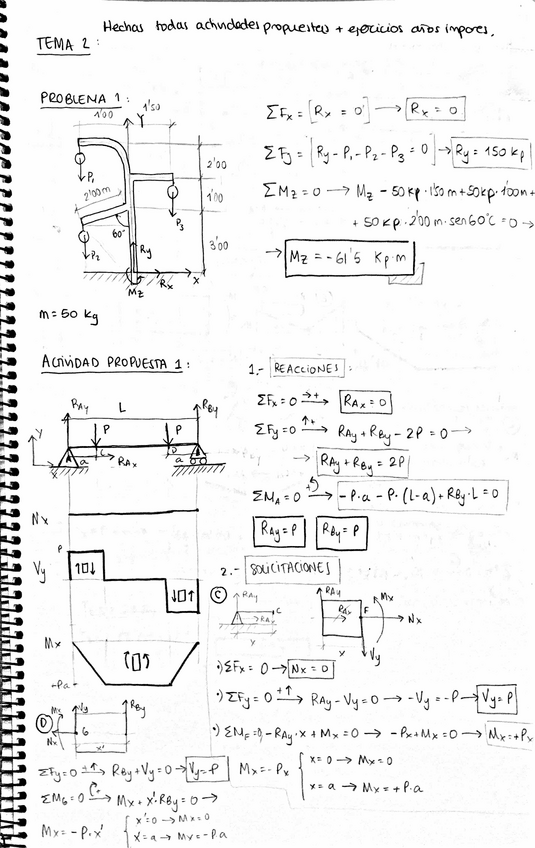 Hechas todas actividades propuestas + ejercicios años impares.
TEMA 2:
PROBLEMA 1:
1'00
1'50
Y
P₁
2'00
2'00m
1'00
60°
P₂
P₃
3'00
Ry
Rx
x
Mz
m = 50 kg
ΣFx = [Rx = 0] → Rx = 0
ΣFy = [Ry - P₁ - P₂ - P₃ = 0] → Ry = 150 kp
ΣMz = 0 → Mz - 50kp·1'50m + 50kp·1'00m +
+ 50kp·2'00m·sen60°C = 0 →
→ Mz = -61'5 Kp·m
ACTIVIDAD PROPUESTA 1:
RAy
L
RBy
P
P
Y
x
A
a
C
RAx
D
a
B
Nx
P
Vy
Mx
-Pa
1.- REACCIONES:
ΣFx = 0 → RAx = 0
ΣFy = 0 → RAy + RBy - 2P = 0 →
→ RAy + RBy = 2P
ΣMA = 0 → -P·a - P·(L-a) + RBy·L = 0
RAy = P RBy = P
2.- SOLICITACIONES
C
RAy
C
RAx
x
RAy
RAx
F
Mx
Nx
x
Vy
·) ΣFx = 0 → Nx = 0
·) ΣFy = 0 → RAy - Vy = 0 → -Vy = -P → Vy = P
·) ΣMF = 0 → -RAy·x + Mx = 0 → -Px + Mx = 0 → Mx = +Px
Mx = -Px
x = 0 → Mx = 0
x = a → Mx = +P·a
D
Mx
Vy
RBy
Nx
G
x'
ΣFy = 0 → RBy + Vy = 0 → Vy = -P
ΣMG = 0 → Mx + x'·RBy = 0 →
Mx = -P·x'
x' = 0 → Mx = 0
x' = a → Mx = -P·a